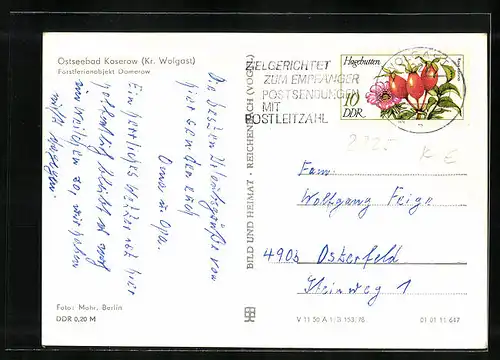 Ostseebad Koserow (Kr. Wolgast)
Forstferienobjekt Damerow
Die besten Urlaubsgrüße von
hier senden Euch
Oma u. Opa.
Ein herrliches Wetter ist hier
hoffentlich bleibt es noch
ein weilchen so, wir haben
nichts dagegen.
Foto: Mohr, Berlin
DDR 0,20 M
BILD UND HEIMAT · REICHENBACH (VOGTL)
V 11 50 A 1/B 153/76
01 01 11 647
ZIELGERICHTET
ZUM EMPFÄNGER
POSTSENDUNGEN
MIT
POSTLEITZAHL
Hagebutten
10
DDR
WOLGAST
Fam.
Wolfgang Feige
4903 Osterfeld
Steinweg 1